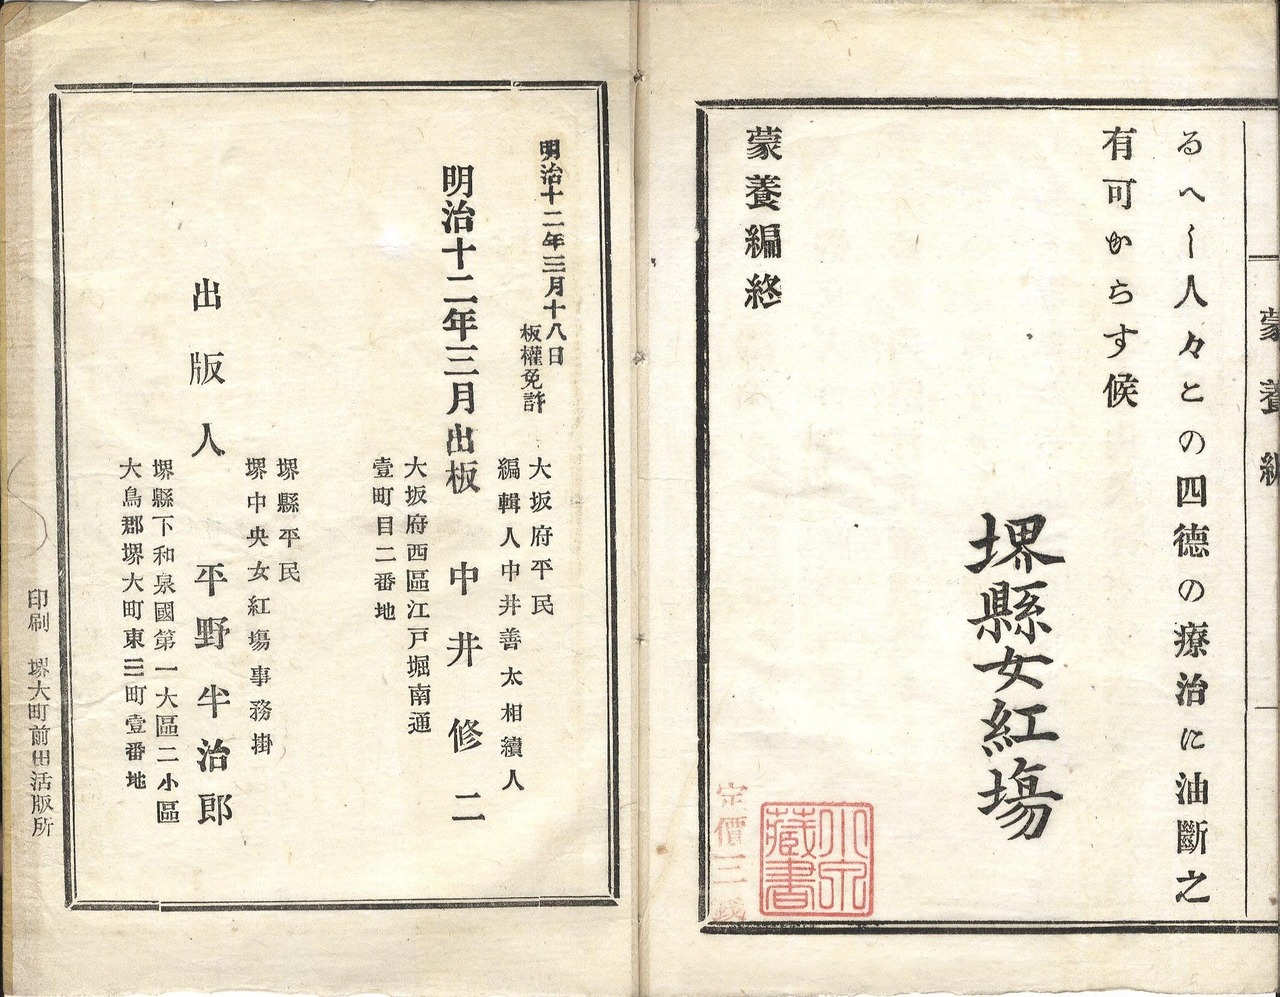 蒙養編
るへし人々との四德の療治に油斷之
有可からす候
堺縣女紅塲
蒙養編終
定價三錢
明治十二年三月十八日
板權免許
明治十二年三月出板
大坂府平民
編輯人中井善太相續人
中井修二
大坂府西區江戸堀南通
壹町目二番地
堺縣平民
堺中央女紅塲事務掛
出版人 平野半治郎
堺縣下和泉國第一大區二小區
大鳥郡堺大町東三町壹番地
印刷 堺大町前田活版所